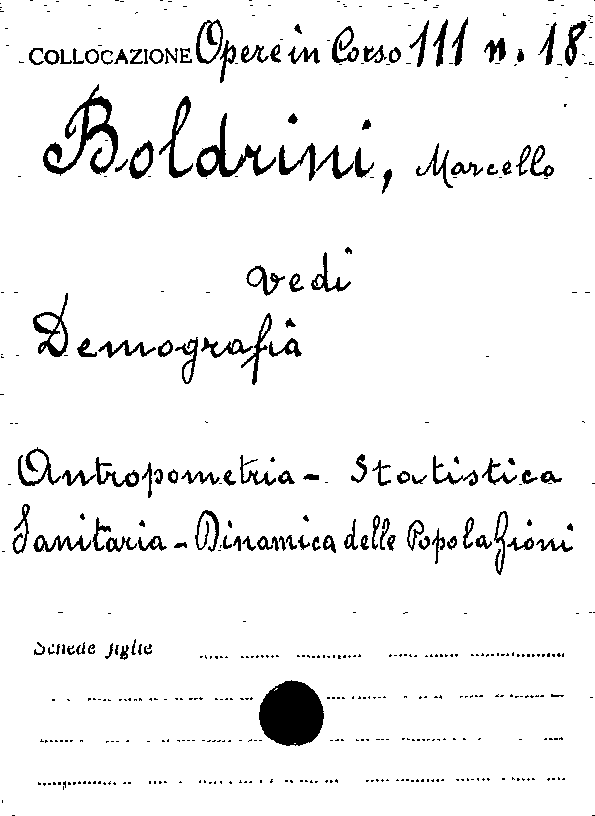 COLLOCAZIONE Opere in Corso 111 n. 18
Boldrini, Marcello
vedi
Demografia
Antropometria - Statistica
Sanitaria - Dinamica delle Popolazioni
Schede figlie